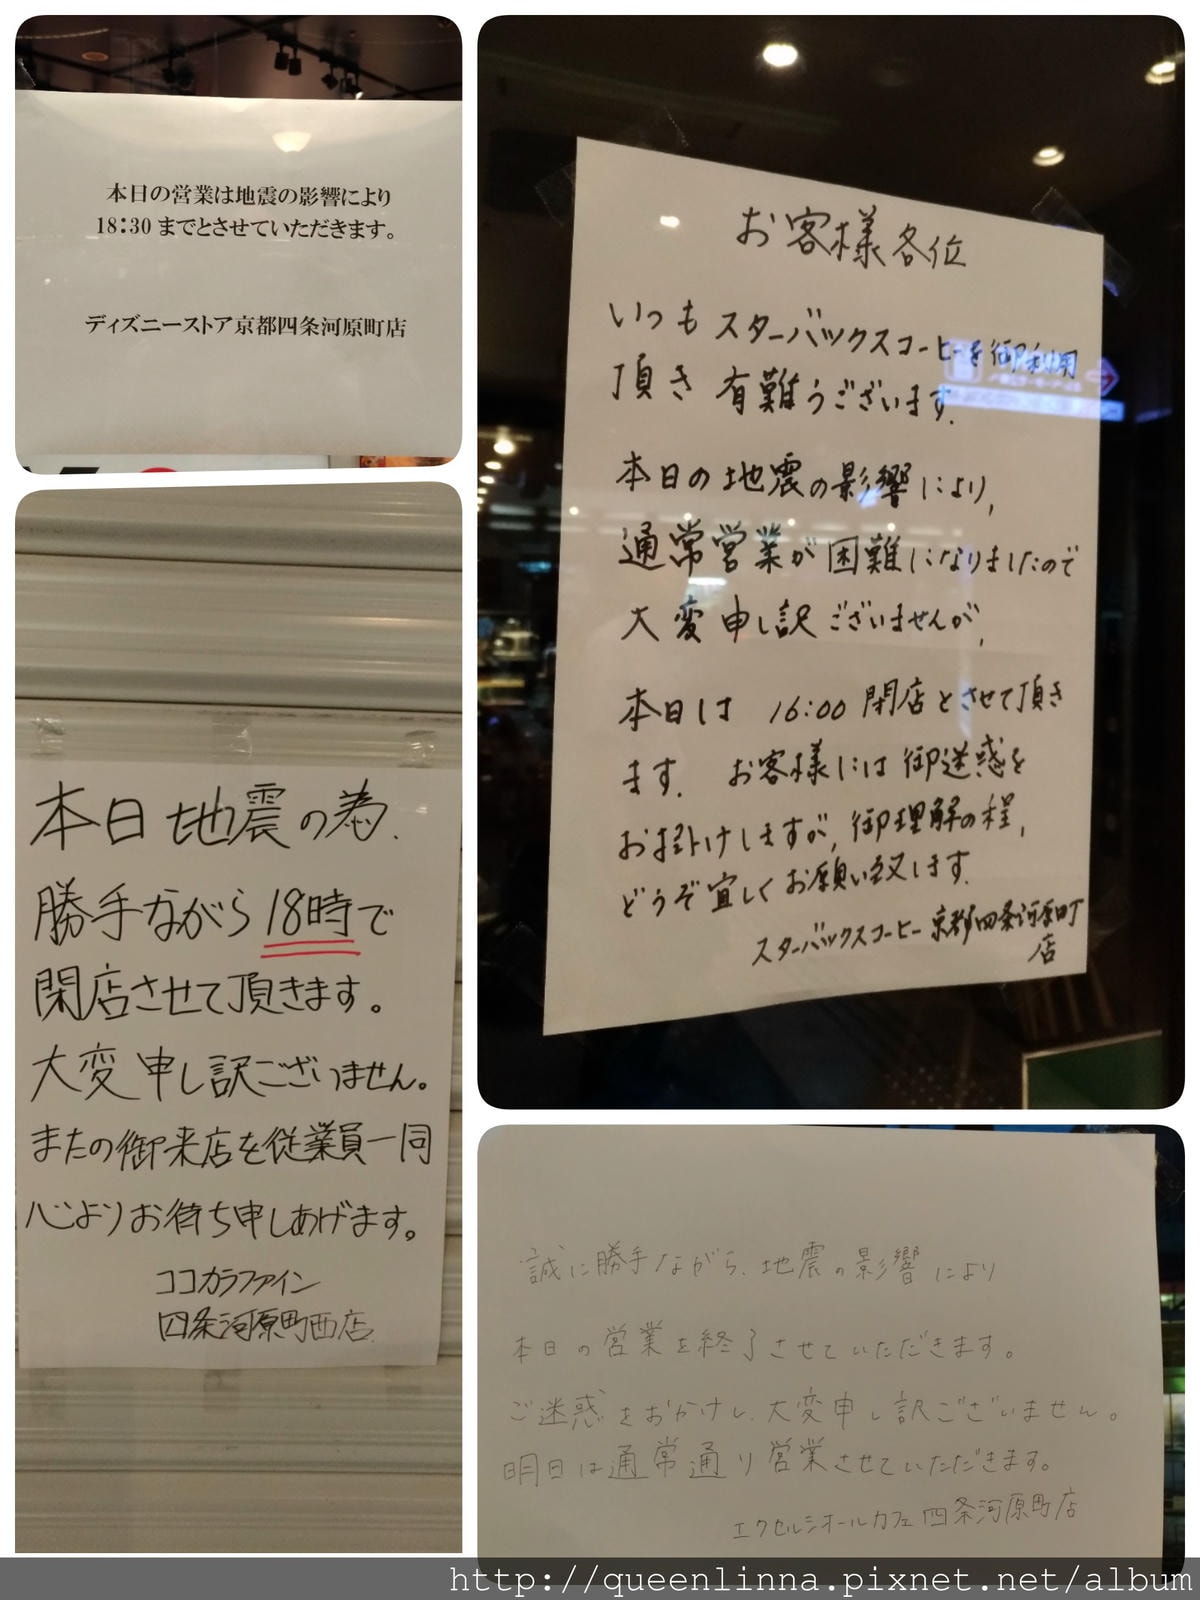 本日の営業は地震の影響により
18:30 までとさせていただきます。
ディズニーストア京都四条河原町店
お客様各位
いつもスターバックスコーヒーを御利用
頂き 有難うございます.
本日の地震の影響により,
通常営業が困難になりましたので
大変申し訳ございませんが,
本日は 16:00 閉店とさせて頂き
ます. お客様には御迷惑を
お掛けしますが, 御理解の程,
どうぞ宜しくお願い致します.
スターバックスコーヒー京都四条河原町
店
本日地震の為.
勝手ながら18時で
閉店させて頂きます。
大変申し訳ございません。
またの御来店を従業員一同
心よりお待ち申しあげます。
ココカラファイン
四条河原町西店
誠に勝手ながら、地震の影響により
本日の営業を終了させていただきます。
ご迷惑をおかけし、大変申し訳ございません。
明日は通常通り営業させていただきます。
エクセルシオールカフェ四条河原町店
http://queenlinna.pixnet.net/album